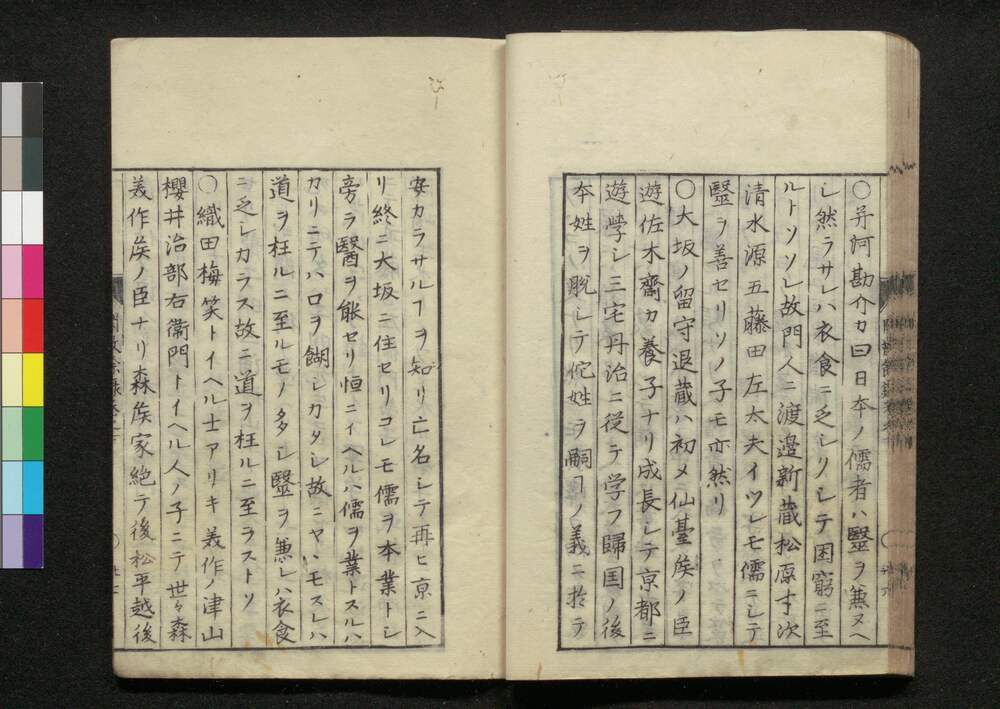 〇并河勘介カ曰日本ノ儒者ハ醫ヲ兼ヌヘ
シ然ラサレハ衣食ニ乏シソノシテ困窮ニ至
ルトソソレ故門人ニ渡邉新蔵松原才次
清水源五藤田左太夫イツレモ儒ニシテ
醫ヲ善セリソノ子モ亦然リ
〇大坂ノ留守退蔵ハ初メ仙臺矦ノ臣
遊佐木齋カ養子ナリ成長シテ京都ニ
遊学シ三宅丹治ニ従テ学フ歸国ノ後
本姓ヲ脱シテ佗姓ヲ嗣ヿノ義ニ於テ
安カラサルヿヲ知リ亡名シテ再ヒ京ニ入
リ終ニ大坂ニ住セリコレモ儒ヲ本業トシ
旁ラ醫ヲ能セリ恒ニイヘルハ儒ヲ業トスルハ
カリニテハ口ヲ餬シカタシ故ニヤハモスレハ
道ヲ枉ルニ至ルモノ多シ醫ヲ兼レハ衣食
ニ乏シカラス故ニ道ヲ枉ルニ至ラストソ
〇織田梅笑トイヘル士アリキ美作ノ津山
櫻井治部右衛門トイヘル人ノ子ニテ世々森
美作矦ノ臣ナリ森矦家絶テ後松平越後